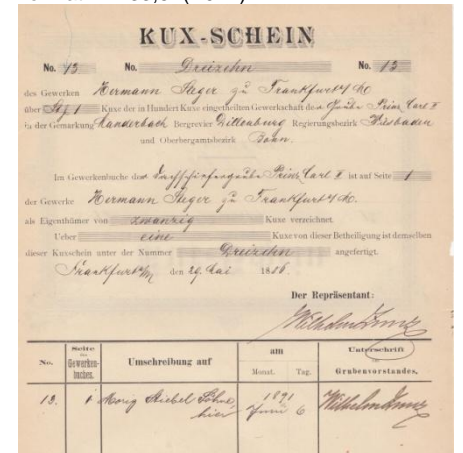 KUX-SCHEIN
No. 13 No. Dreizehn No. 13
des Gewerken Hermann Steger zu Frankfurt a/Mo
über 1 Kuxe der in Hundert Kuxe eingetheilten Gewerkschaft der Grube Prinz Carl II
in der Gemarkung Manderbach Bergrevier Dillenburg Regierungsbezirk Wiesbaden
und Oberbergamtsbezirk Bonn.
Im Gewerkenbuche der Dachschiefergrube Prinz Carl II ist auf Seite 1
der Gewerke Hermann Steger zu Frankfurt a/Mo.
als Eigenthümer von zwanzig Kuxe verzeichnet.
Ueber eine Kuxe von dieser Betheiligung ist demselben
dieser Kuxschein unter der Nummer Dreizehn angefertigt.
Frankfurt a/M den 29. Mai 1886.
Der Repräsentant:
Wilhelm
No. Seite des Gewerkenbuches. Umschreibung auf am Monat. Tag. Unterschrift des Grubenvorstandes.
13. 1 Moriz Stiebel Söhne 1891 Wilhelm
hier Juni 6